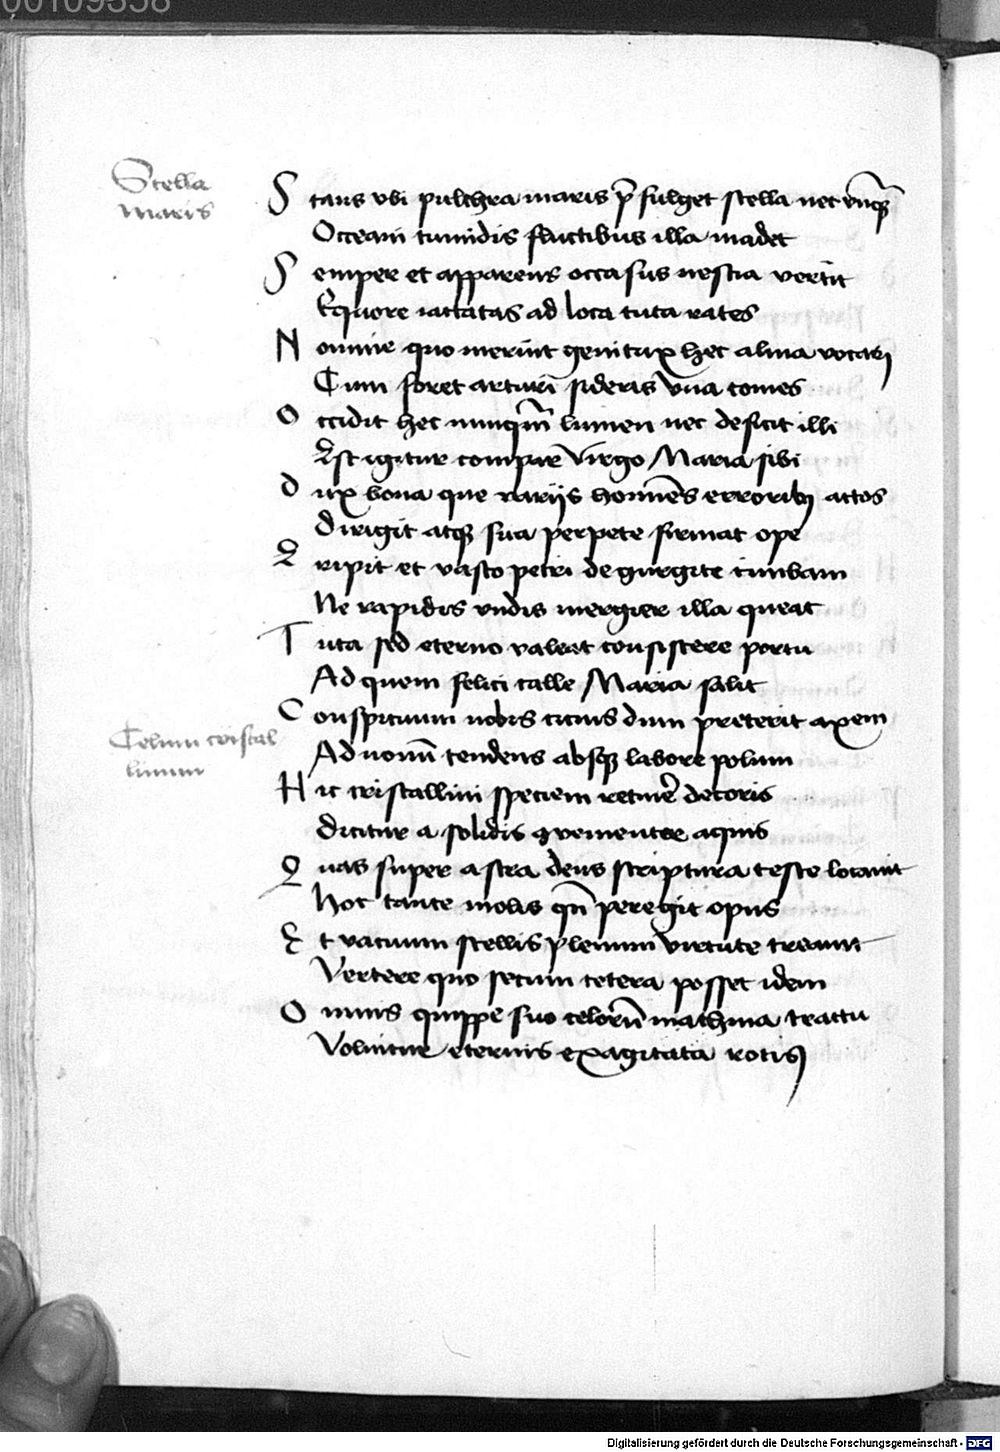 00109358
Stella
maris
Stans vbi pulchra maris p̄fulget stella nec vnq̄
Occeani tumidis fluctibus illa madet
Semper et apparens occasus nescia vertit
Equore iactatas ad loca tuta rates
Nomine quo meruit genitrix hec alma vocari
Cum foret arturi sideris vna comes
Occidit hec nunqm̄ lumen nec deficit illi
Est igitur compar virgo Maria sibi
Dux bona que varijs homīes erroribꝫ actos
Dirigit atqꝫ sua perpete firmat ope
Eripit et vasto petri de gurgite cimbam
Ne rapidis vndis mergier illa queat
Tuta sed eterno valeat consistere portu
Ad quem felici calle Maria salit
Conspicuum nobis citius dum preterit axem
Ad nonū tendens absqꝫ labore polum
Celum cristal
linum
Hic cristallini speciem retinēs decoris
Dicitur a solidis ꝯuenienter aquis
Quas super astra deus scriptura teste locauit
Hoc tante molis qn̄ peregit opus
Et vacuum stellis plenum virtute creauit
Vertere quo secum cetera posset idem
Omnis quippe suo celorū machina tractu
Voluitur eternis exagitata rotis
Digitalisierung gefördert durch die Deutsche Forschungsgemeinschaft - DFG